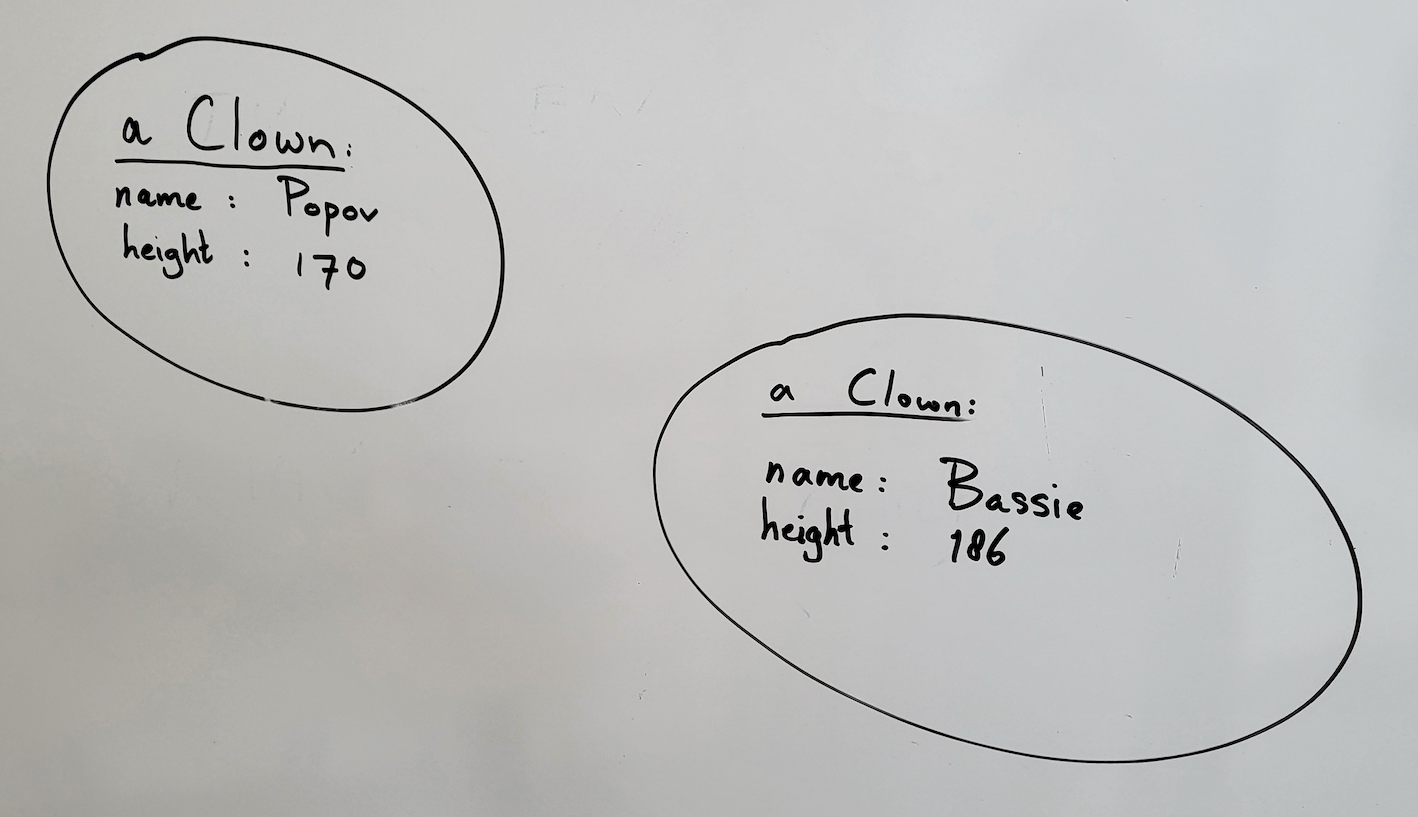 a Clown:
name : Popov
height : 170
a Clown:
name : Bassie
height : 186